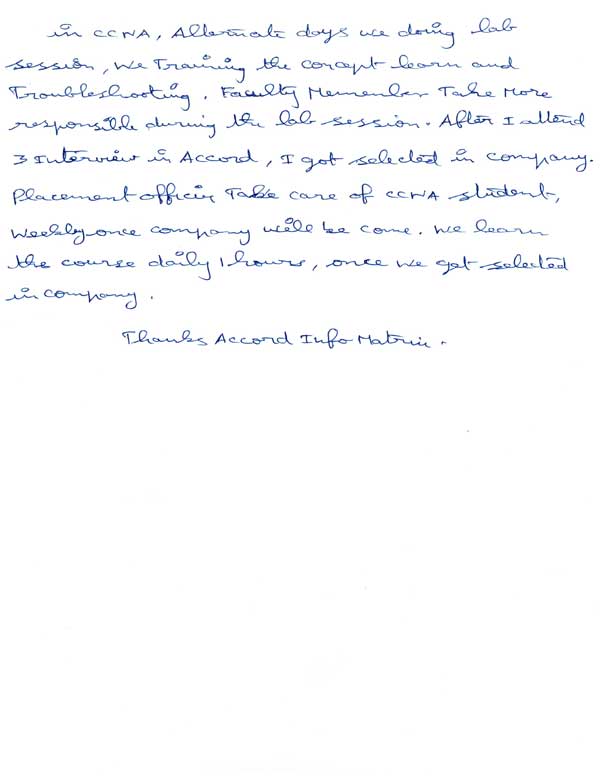 in CCNA, Alternate days we doing lab
session, we Training the concept learn and
Troubleshooting. Faculty Memember Take More
responsible during the lab session. After I attend
3 Interview in Accord, I got selected in company.
Placement officer Take care of CCNA student,
Weekly once company will be come. We learn
the course daily 1 hours, once we get selected
in company.
Thanks Accord Info Matrix.